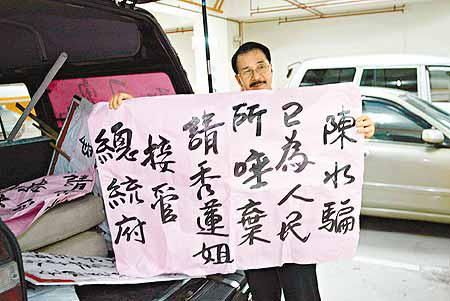 陳水騙
已為人民
所唾棄
請秀蓮姐
接管
總統府